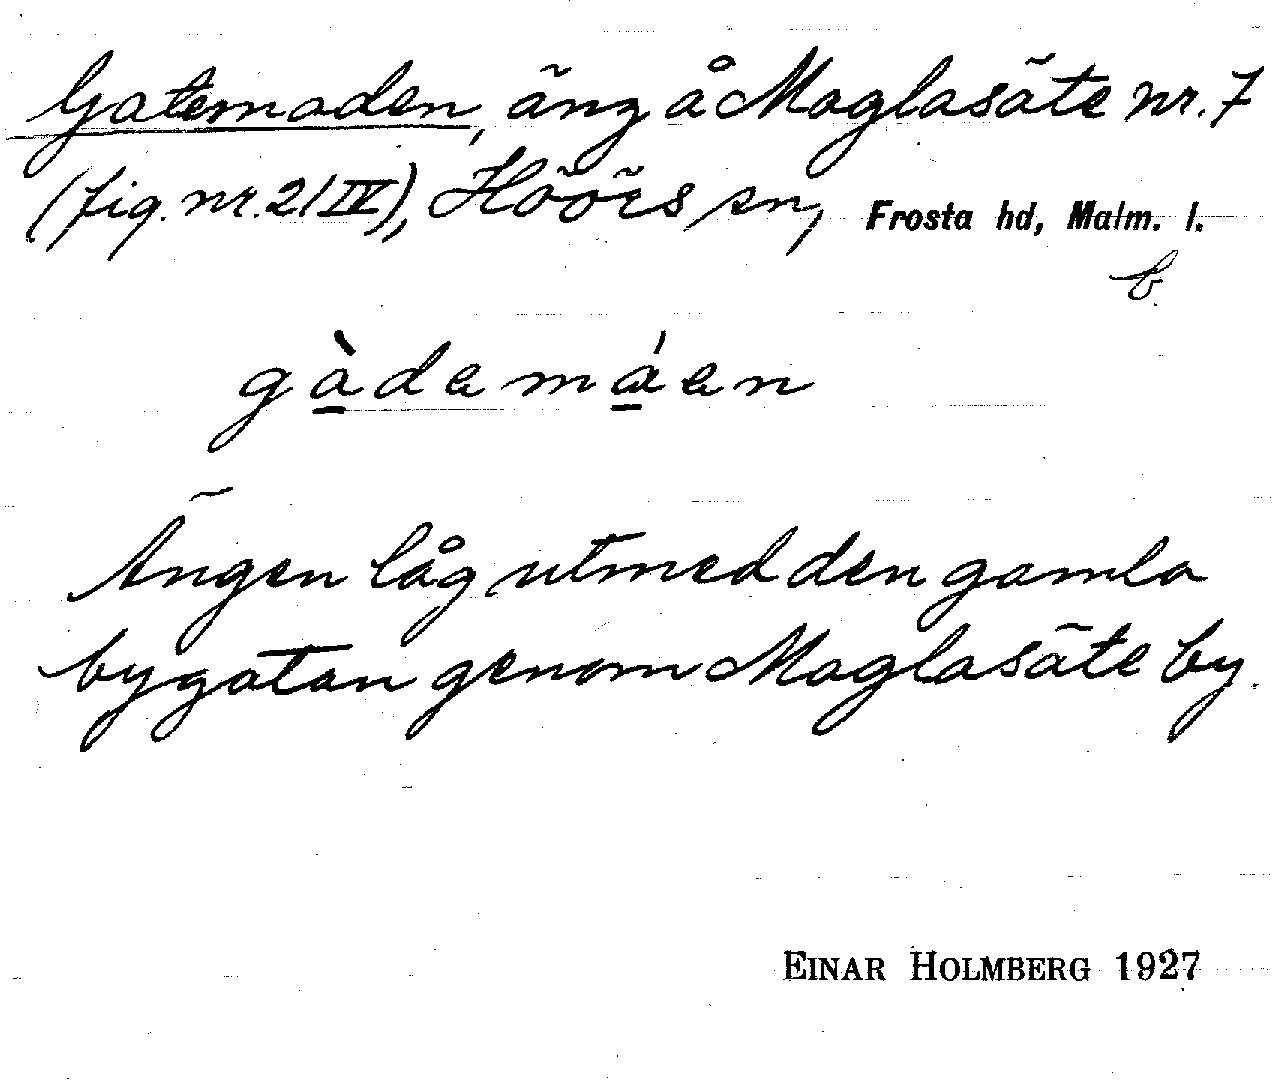 Gatemaden, äng å Maglasäte nr. 7
(fig. nr. 2/IV), Höörs sn, Frosta hd, Malm. l.
b.
gàdamáen
Ängen låg utmed den gamla
bygatan genom Maglasäte by.
EINAR HOLMBERG 1927